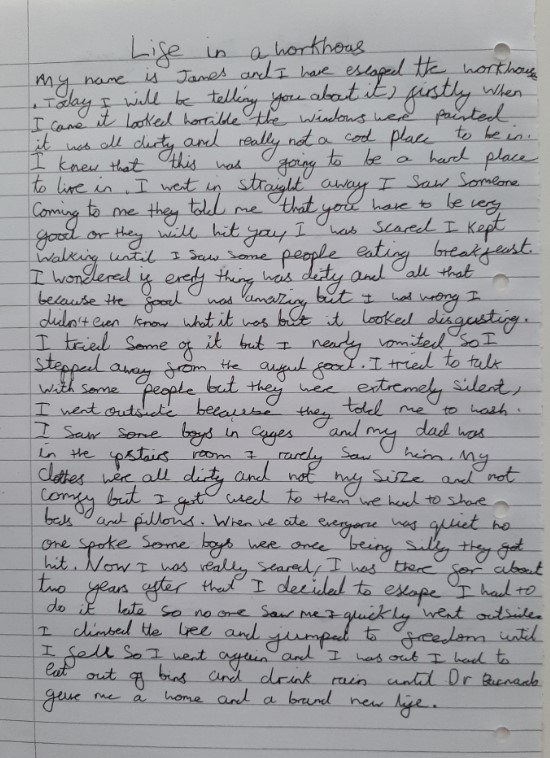 Life in a workhous
My name is James and I have escaped the workhouse
. Today I will be telling you about it, firstly when
I came it looked horrible the windows were painted
it was all dirty and really not a cod place to be in.
I knew that this was going to be a hard place
to live in. I wet in straight away I saw someone
coming to me they told me that you have to be very
good or they will hit you, I was scared I kept
walking until I saw some people eating breakfeast.
I wondered if every thing was dirty and all that
because the food was amazing but I was wrong I
didn't even know what it was but it looked disgusting.
I tried some of it but I nearly vomited so I
stepped away from the awful food. I tried to talk
with some people but they were extremely silent,
I went outside because they told me to wash.
I saw some boys in cages and my dad was
in the upstairs room I rarely saw him. My
clothes were all dirty and not my size and not
comfy but I got used to them we had to share
beds and pillows. When we ate everyone was quiet no
one spoke some boys were once being silly they got
hit. Now I was really scared, I was there for about
two years after that I decided to escape I had to
do it late so no one saw me I quickly went outside.
I climbed the tree and jumped to freedom until
I fell so I went again and I was out I had to
eat out of bins and drink rain until Dr Barnardo
gave me a home and a brand new life.